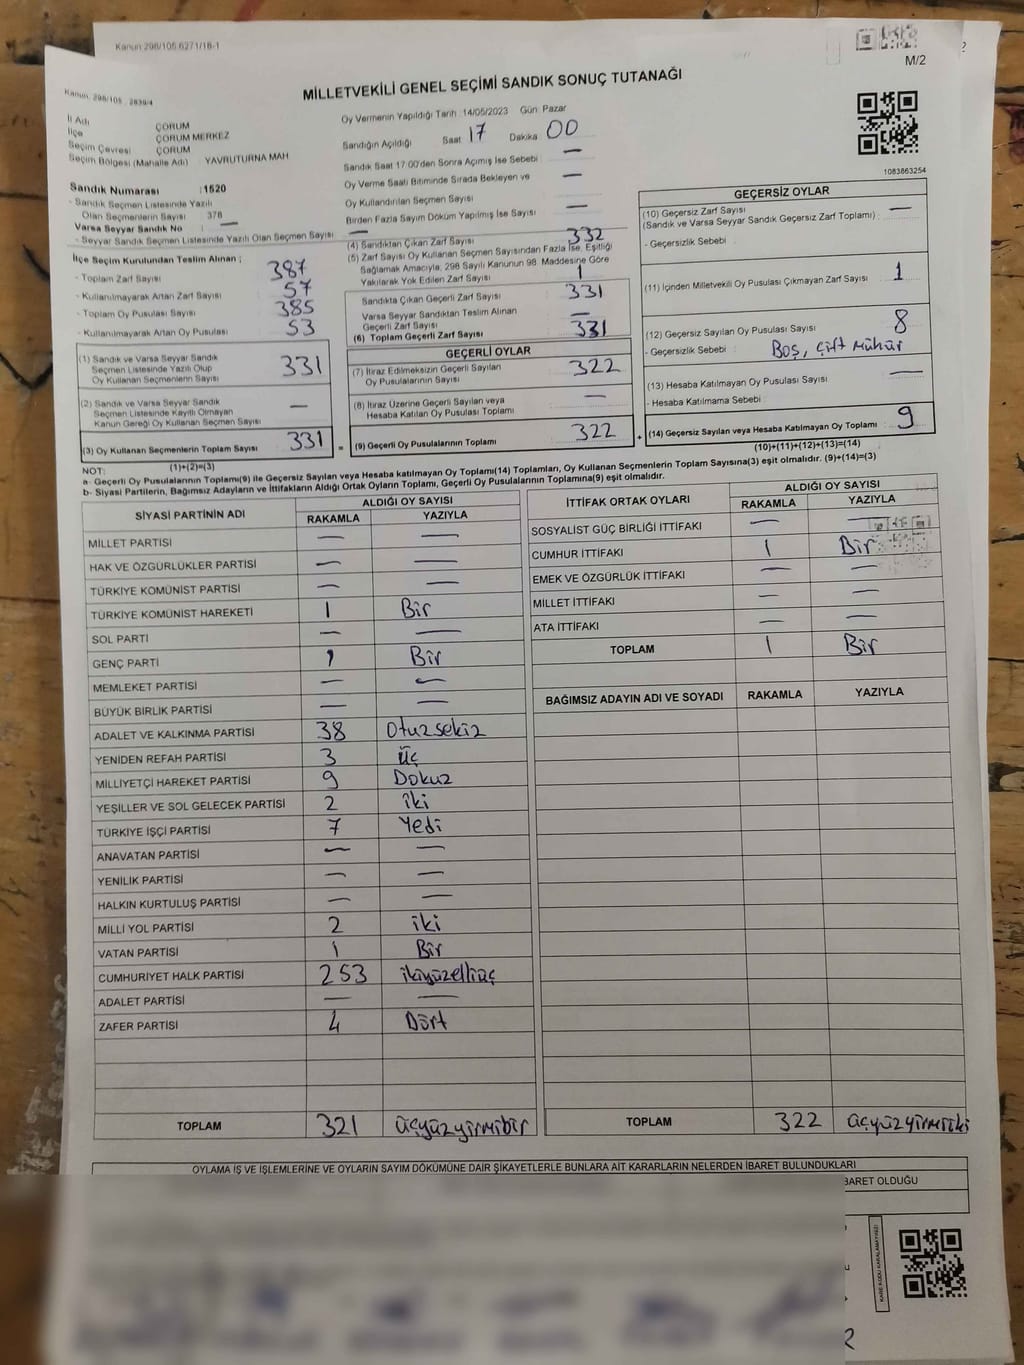 Kanun 298/105.6271/18-1
M/2
MİLLETVEKİLİ GENEL SEÇİMİ SANDIK SONUÇ TUTANAĞI
İl Adı ÇORUM
İlçe ÇORUM MERKEZ
Seçim Çevresi ÇORUM
Seçim Bölgesi (Mahalle Adı) YAVRUTURNA MAH
Sandık Numarası : 1520
- Sandık Seçmen Listesinde Yazılı
Olan Seçmenlerin Sayısı 378
Varsa Seyyar Sandık No —
- Seyyar Sandık Seçmen Listesinde Yazılı Olan Seçmen Sayısı —
İlçe Seçim Kurulundan Teslim Alınan ;
- Toplam Zarf Sayısı 387
- Kullanılmayarak Artan Zarf Sayısı 57
- Toplam Oy Pusulası Sayısı 385
- Kullanılmayarak Artan Oy Pusulası 53
(1) Sandık ve Varsa Seyyar Sandık
Seçmen Listesinde Yazılı Olup
Oy Kullanan Seçmenlerin Sayısı 331
(2) Sandık ve Varsa Seyyar Sandık
Seçmen Listesinde Kayıtlı Olmayan
Kanun Gereği Oy Kullanan Seçmen Sayısı —
(3) Oy Kullanan Seçmenlerin Toplam Sayısı 331 =
(1)+(2)=(3)
Oy Vermenin Yapıldığı Tarih : 14/05/2023 Gün: Pazar
Sandığın Açıldığı Saat 17 Dakika 00
Sandık Saat 17.00'den Sonra Açımış İse Sebebi : —
Oy Verme Saati Bitiminde Sırada Bekleyen ve
Oy Kullandırılan Seçmen Sayısı —
Birden Fazla Sayım Döküm Yapılmış İse Sayısı —
(4) Sandıktan Çıkan Zarf Sayısı 332
(5) Zarf Sayısı Oy Kullanan Seçmen Sayısından Fazla İse, Eşitliği
Sağlamak Amacıyla; 298 Sayılı Kanunun 98. Maddesine Göre
Yakılarak Yok Edilen Zarf Sayısı 1
Sandıkta Çıkan Geçerli Zarf Sayısı 331
Varsa Seyyar Sandıktan Teslim Alınan
Geçerli Zarf Sayısı —
(6) Toplam Geçerli Zarf Sayısı 331
GEÇERLİ OYLAR
(7) İtiraz Edilmeksizin Geçerli Sayılan
Oy Pusulalarının Sayısı 322
(8) İtiraz Üzerine Geçerli Sayılan veya
Hesaba Katılan Oy Pusulası Toplamı —
(9) Geçerli Oy Pusulalarının Toplamı 322 +
1083863254
GEÇERSİZ OYLAR
(10) Geçersiz Zarf Sayısı
(Sandık ve Varsa Seyyar Sandık Geçersiz Zarf Toplamı) : —
- Geçersizlik Sebebi :
(11) İçinden Milletvekili Oy Pusulası Çıkmayan Zarf Sayısı 1
(12) Geçersiz Sayılan Oy Pusulası Sayısı 8
- Geçersizlik Sebebi : Boş, Çift mühür
(13) Hesaba Katılmayan Oy Pusulası Sayısı —
- Hesaba Katılmama Sebebi :
(14) Geçersiz Sayılan veya Hesaba Katılmayan Oy Toplamı 9
(10)+(11)+(12)+(13)=(14)
NOT:
a- Geçerli Oy Pusulalarının Toplamı(9) ile Geçersiz Sayılan veya Hesaba katılmayan Oy Toplamı(14) Toplamları, Oy Kullanan Seçmenlerin Toplam Sayısına(3) eşit olmalıdır. (9)+(14)=(3)
b- Siyasi Partilerin, Bağımsız Adayların ve İttifakların Aldığı Ortak Oyların Toplamı, Geçerli Oy Pusulalarının Toplamına(9) eşit olmalıdır.
SİYASİ PARTİNİN ADI ALDIĞI OY SAYISI
RAKAMLA YAZIYLA
MİLLET PARTİSİ — —
HAK VE ÖZGÜRLÜKLER PARTİSİ — —
TÜRKİYE KOMÜNİST PARTİSİ — —
TÜRKİYE KOMÜNİST HAREKETİ 1 Bir
SOL PARTİ — —
GENÇ PARTİ 1 Bir
MEMLEKET PARTİSİ — —
BÜYÜK BİRLİK PARTİSİ — —
ADALET VE KALKINMA PARTİSİ 38 Otuzsekiz
YENİDEN REFAH PARTİSİ 3 Üç
MİLLİYETÇİ HAREKET PARTİSİ 9 Dokuz
YEŞİLLER VE SOL GELECEK PARTİSİ 2 iki
TÜRKİYE İŞÇİ PARTİSİ 7 Yedi
ANAVATAN PARTİSİ — —
YENİLİK PARTİSİ — —
HALKIN KURTULUŞ PARTİSİ — —
MİLLİ YOL PARTİSİ 2 iki
VATAN PARTİSİ 1 Bir
CUMHURİYET HALK PARTİSİ 253 ikiyüzelliüç
ADALET PARTİSİ — —
ZAFER PARTİSİ 4 Dört
TOPLAM 321 üçyüzyirmibir
İTTİFAK ORTAK OYLARI ALDIĞI OY SAYISI
RAKAMLA YAZIYLA
SOSYALİST GÜÇ BİRLİĞİ İTTİFAKI — —
CUMHUR İTTİFAKI 1 Bir
EMEK VE ÖZGÜRLÜK İTTİFAKI — —
MİLLET İTTİFAKI — —
ATA İTTİFAKI — —
TOPLAM 1 Bir
BAĞIMSIZ ADAYIN ADI VE SOYADI RAKAMLA YAZIYLA
TOPLAM 322 üçyüzyirmiiki
OYLAMA İŞ VE İŞLEMLERİNE VE OYLARIN SAYIM DÖKÜMÜNE DAİR ŞİKAYETLERLE BUNLARA AİT KARARLARIN NELERDEN İBARET BULUNDUKLARI
BARET OLDUĞU